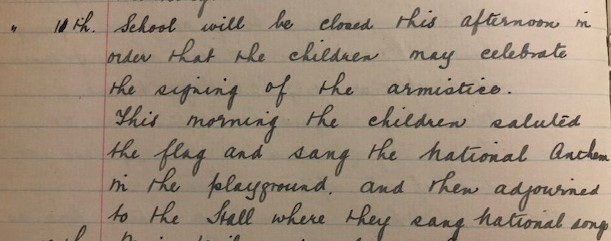 " 10th. School will be closed this afternoon in
order that the children may celebrate
the signing of the armistice.
This morning the children saluted
the flag and sang the National Anthem
in the playground. and then adjourned
to the Hall where they sang National song